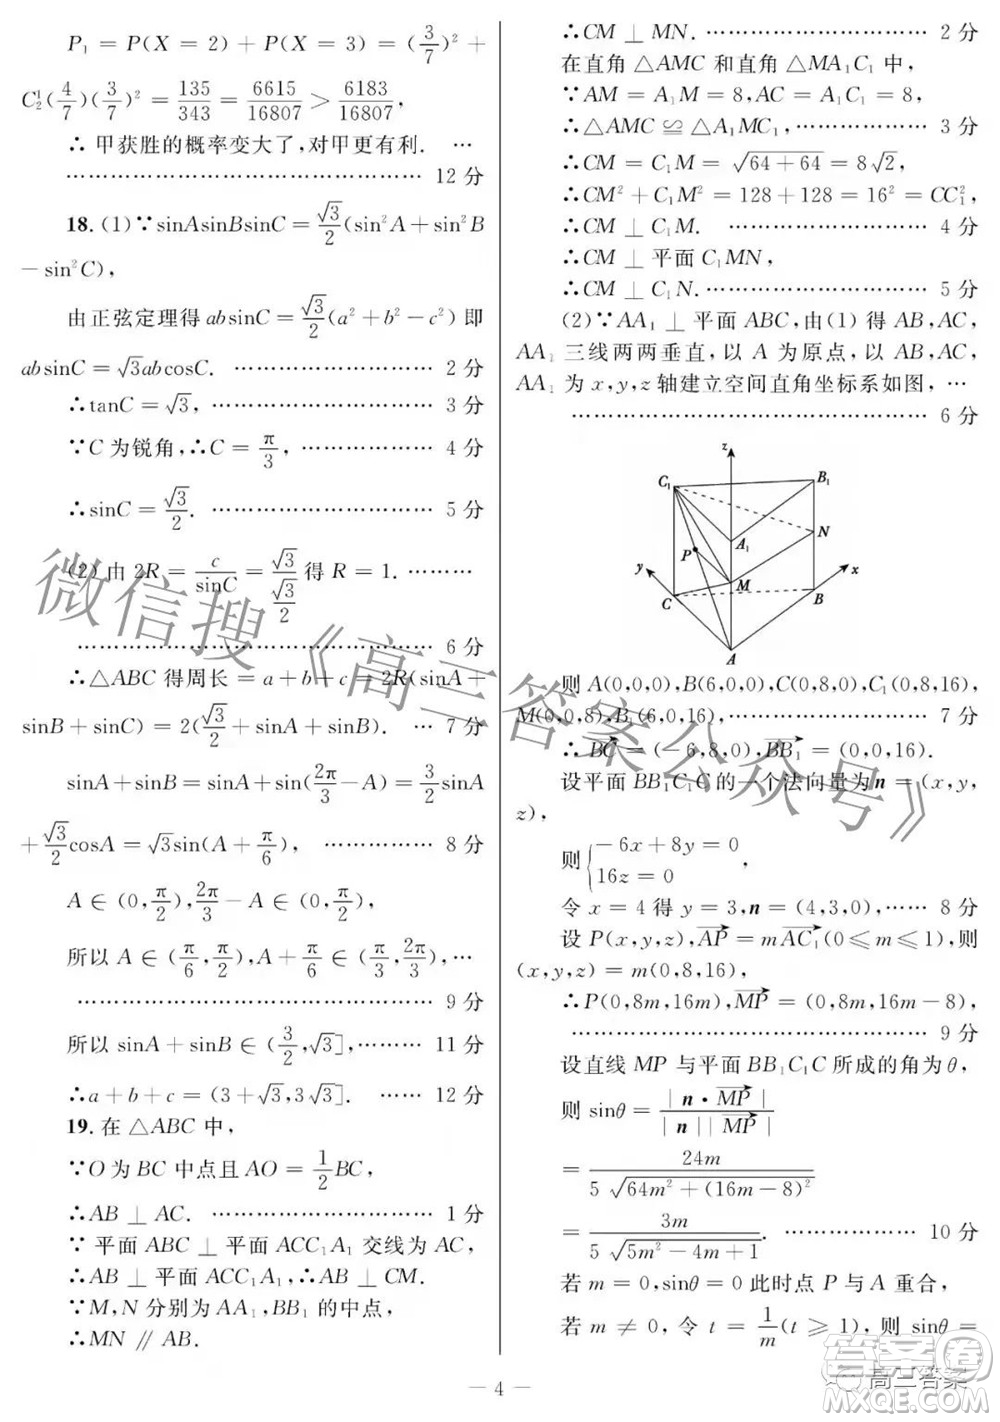 P₁ = P(X = 2) + P(X = 3) = (3/7)² +
C₂¹(4/7)(3/7)² = 135/343 = 6615/16807 > 6183/16807,
∴ 甲获胜的概率变大了,对甲更有利. …
………………………………………… 12 分
18. (1)∵sinAsinBsinC = √3/2(sin²A + sin²B
− sin²C),
由正弦定理得 absinC = √3/2(a² + b² − c²) 即
absinC = √3abcosC. ………………………… 2 分
∴tanC = √3, ………………………… 3 分
∵C 为锐角,∴C = π/3, ……………… 4 分
∴sinC = √3/2. ………………………… 5 分
(2) 由 2R = c/sinC = √3/(√3/2) 得 R = 1. ………
………………………………………… 6 分
∴△ABC 得周长 = a + b + c = 2R(sinA +
sinB + sinC) = 2(√3/2 + sinA + sinB). … 7 分
sinA + sinB = sinA + sin(2π/3 − A) = 3/2sinA
+ √3/2cosA = √3sin(A + π/6), …………… 8 分
A ∈ (0, π/2), 2π/3 − A ∈ (0, π/2),
所以 A ∈ (π/6, π/2), A + π/6 ∈ (π/3, 2π/3), …
………………………………………… 9 分
所以 sinA + sinB ∈ (3/2, √3], ……… 11 分
∴a + b + c = (3 + √3, 3√3]. …… 12 分
19. 在 △ABC 中,
∵O 为 BC 中点且 AO = 1/2BC,
∴AB ⊥ AC. ………………………… 1 分
∵ 平面 ABC ⊥ 平面 ACC₁A₁ 交线为 AC,
∴AB ⊥ 平面 ACC₁A₁,∴AB ⊥ CM.
∵M,N 分别为 AA₁,BB₁ 的中点,
∴MN ∥ AB.
∴CM ⊥ MN. ………………………… 2 分
在直角 △AMC 和直角 △MA₁C₁ 中,
∵AM = A₁M = 8,AC = A₁C₁ = 8,
∴△AMC ≌ △A₁MC₁, ……………… 3 分
∴CM = C₁M = √(64 + 64) = 8√2,
∴CM² + C₁M² = 128 + 128 = 16² = CC₁²,
∴CM ⊥ C₁M. ………………………… 4 分
∴CM ⊥ 平面 C₁MN,
∴CM ⊥ C₁N. ………………………… 5 分
(2)∵AA₁ ⊥ 平面 ABC,由(1) 得 AB,AC,
AA₁ 三线两两垂直,以 A 为原点,以 AB,AC,
AA₁ 为 x,y,z 轴建立空间直角坐标系如图, …
………………………………………… 6 分
z
C₁
B₁
N
A₁
P
M
y
x
C
B
A
则 A(0,0,0),B(6,0,0),C(0,8,0),C₁(0,8,16),
M(0,0,8),B₁(6,0,16), ……………………… 7 分
∴ BC→ = (−6,8,0),BB₁→ = (0,0,16).
设平面 BB₁C₁C 的一个法向量为 n = (x,y,
z),
则{−6x + 8y = 0
16z = 0,
令 x = 4 得 y = 3,n = (4,3,0), …… 8 分
设 P(x,y,z),AP→ = mAC₁→(0 ⩽ m ⩽ 1),则
(x,y,z) = m(0,8,16),
∴P(0,8m,16m),MP→ = (0,8m,16m − 8),
………………………………………… 9 分
设直线 MP 与平面 BB₁C₁C 所成的角为 θ,
则 sinθ = |n · MP→| / |n||MP→|
= 24m / 5√(64m² + (16m − 8)²)
= 3m / 5√(5m² − 4m + 1). ……………… 10 分
若 m = 0,sinθ = 0 此时点 P 与 A 重合,
若 m ≠ 0,令 t = 1/m(t ⩾ 1),则 sinθ =
— 4 —
微信搜《高三答案公众号》
高三答案
答案圈
MXQE.COM